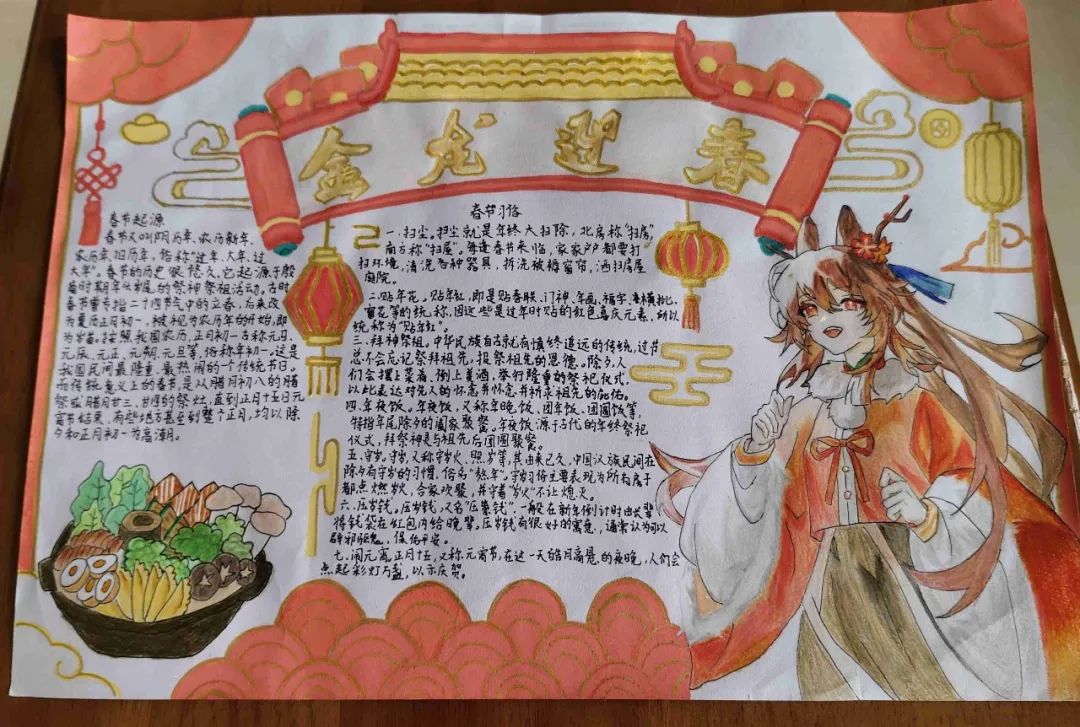 金龙迎春
春节起源
春节又叫阴历年、农历新年、
农历年、旧历年，俗称“过年、大年、过
大年”。春节的历史很悠久，它起源于殷
商时期年头岁尾的祭神祭祖活动。古时
春节曾专指二十四节气中的立春，后来改
为夏历正月初一，被视为农历年的开始，即
为岁首。按照我国农历，正月初一古称元日、
元辰、元正、元朔、元旦等，俗称年初一。这是
我国民间最隆重、最热闹的一个传统节日。
而传统意义上的春节，是从腊月初八的腊
祭或腊月廿三、廿四的祭灶，直到正月十五日元
宵节结束，有些地方甚至到整个正月，均以除
夕和正月初一为高潮。
春节习俗
一、扫尘。扫尘就是年终大扫除，北方称“扫房”，
南方称“扫屋”。每逢春节来临，家家户户都要打
扫环境，清洗各种器具，拆洗被褥窗帘，洒扫房屋
庭院。
二、贴年花。贴年红，即是贴春联、门神、年画、福字、横批、
窗花等的统称，因这些是过年时贴的红色喜庆元素，所以
统称为“贴年红”。
三、拜神祭祖。中华民族自古就有慎终追远的传统，过节
总不会忘记祭拜祖先，报祭祖先的恩德。除夕，人
们会摆上菜肴、倒上美酒，举行隆重的祭祀仪式，
以此表达对先人的怀念并怀念并祈求祖先的庇佑。
四、年夜饭。年夜饭，又称年晚饭、团年饭、团圆饭等，
特指年尾除夕的阖家聚餐。年夜饭源于古代的年终祭祀
仪式，拜祭神灵与祖先后团圆聚餐。
五、守岁。守岁，又称守火、照岁等，其由来已久，中国汉族民间在
除夕有守岁的习惯，俗名“熬年”。守岁习俗主要表现为所有房子
都点燃岁火，合家欢聚，并守着“岁火”不让熄灭。
六、压岁钱。压岁钱，又名“压祟钱”。一般在新年倒计时由长辈
将钱袋在红包内给晚辈，压岁钱有很好的寓意，通常认为可以
辟邪驱鬼，保佑平安。
七、闹元宵。正月十五，又称元宵节，在这一天皓月高悬的夜晚，人们会
点起彩灯万盏，以示庆贺。